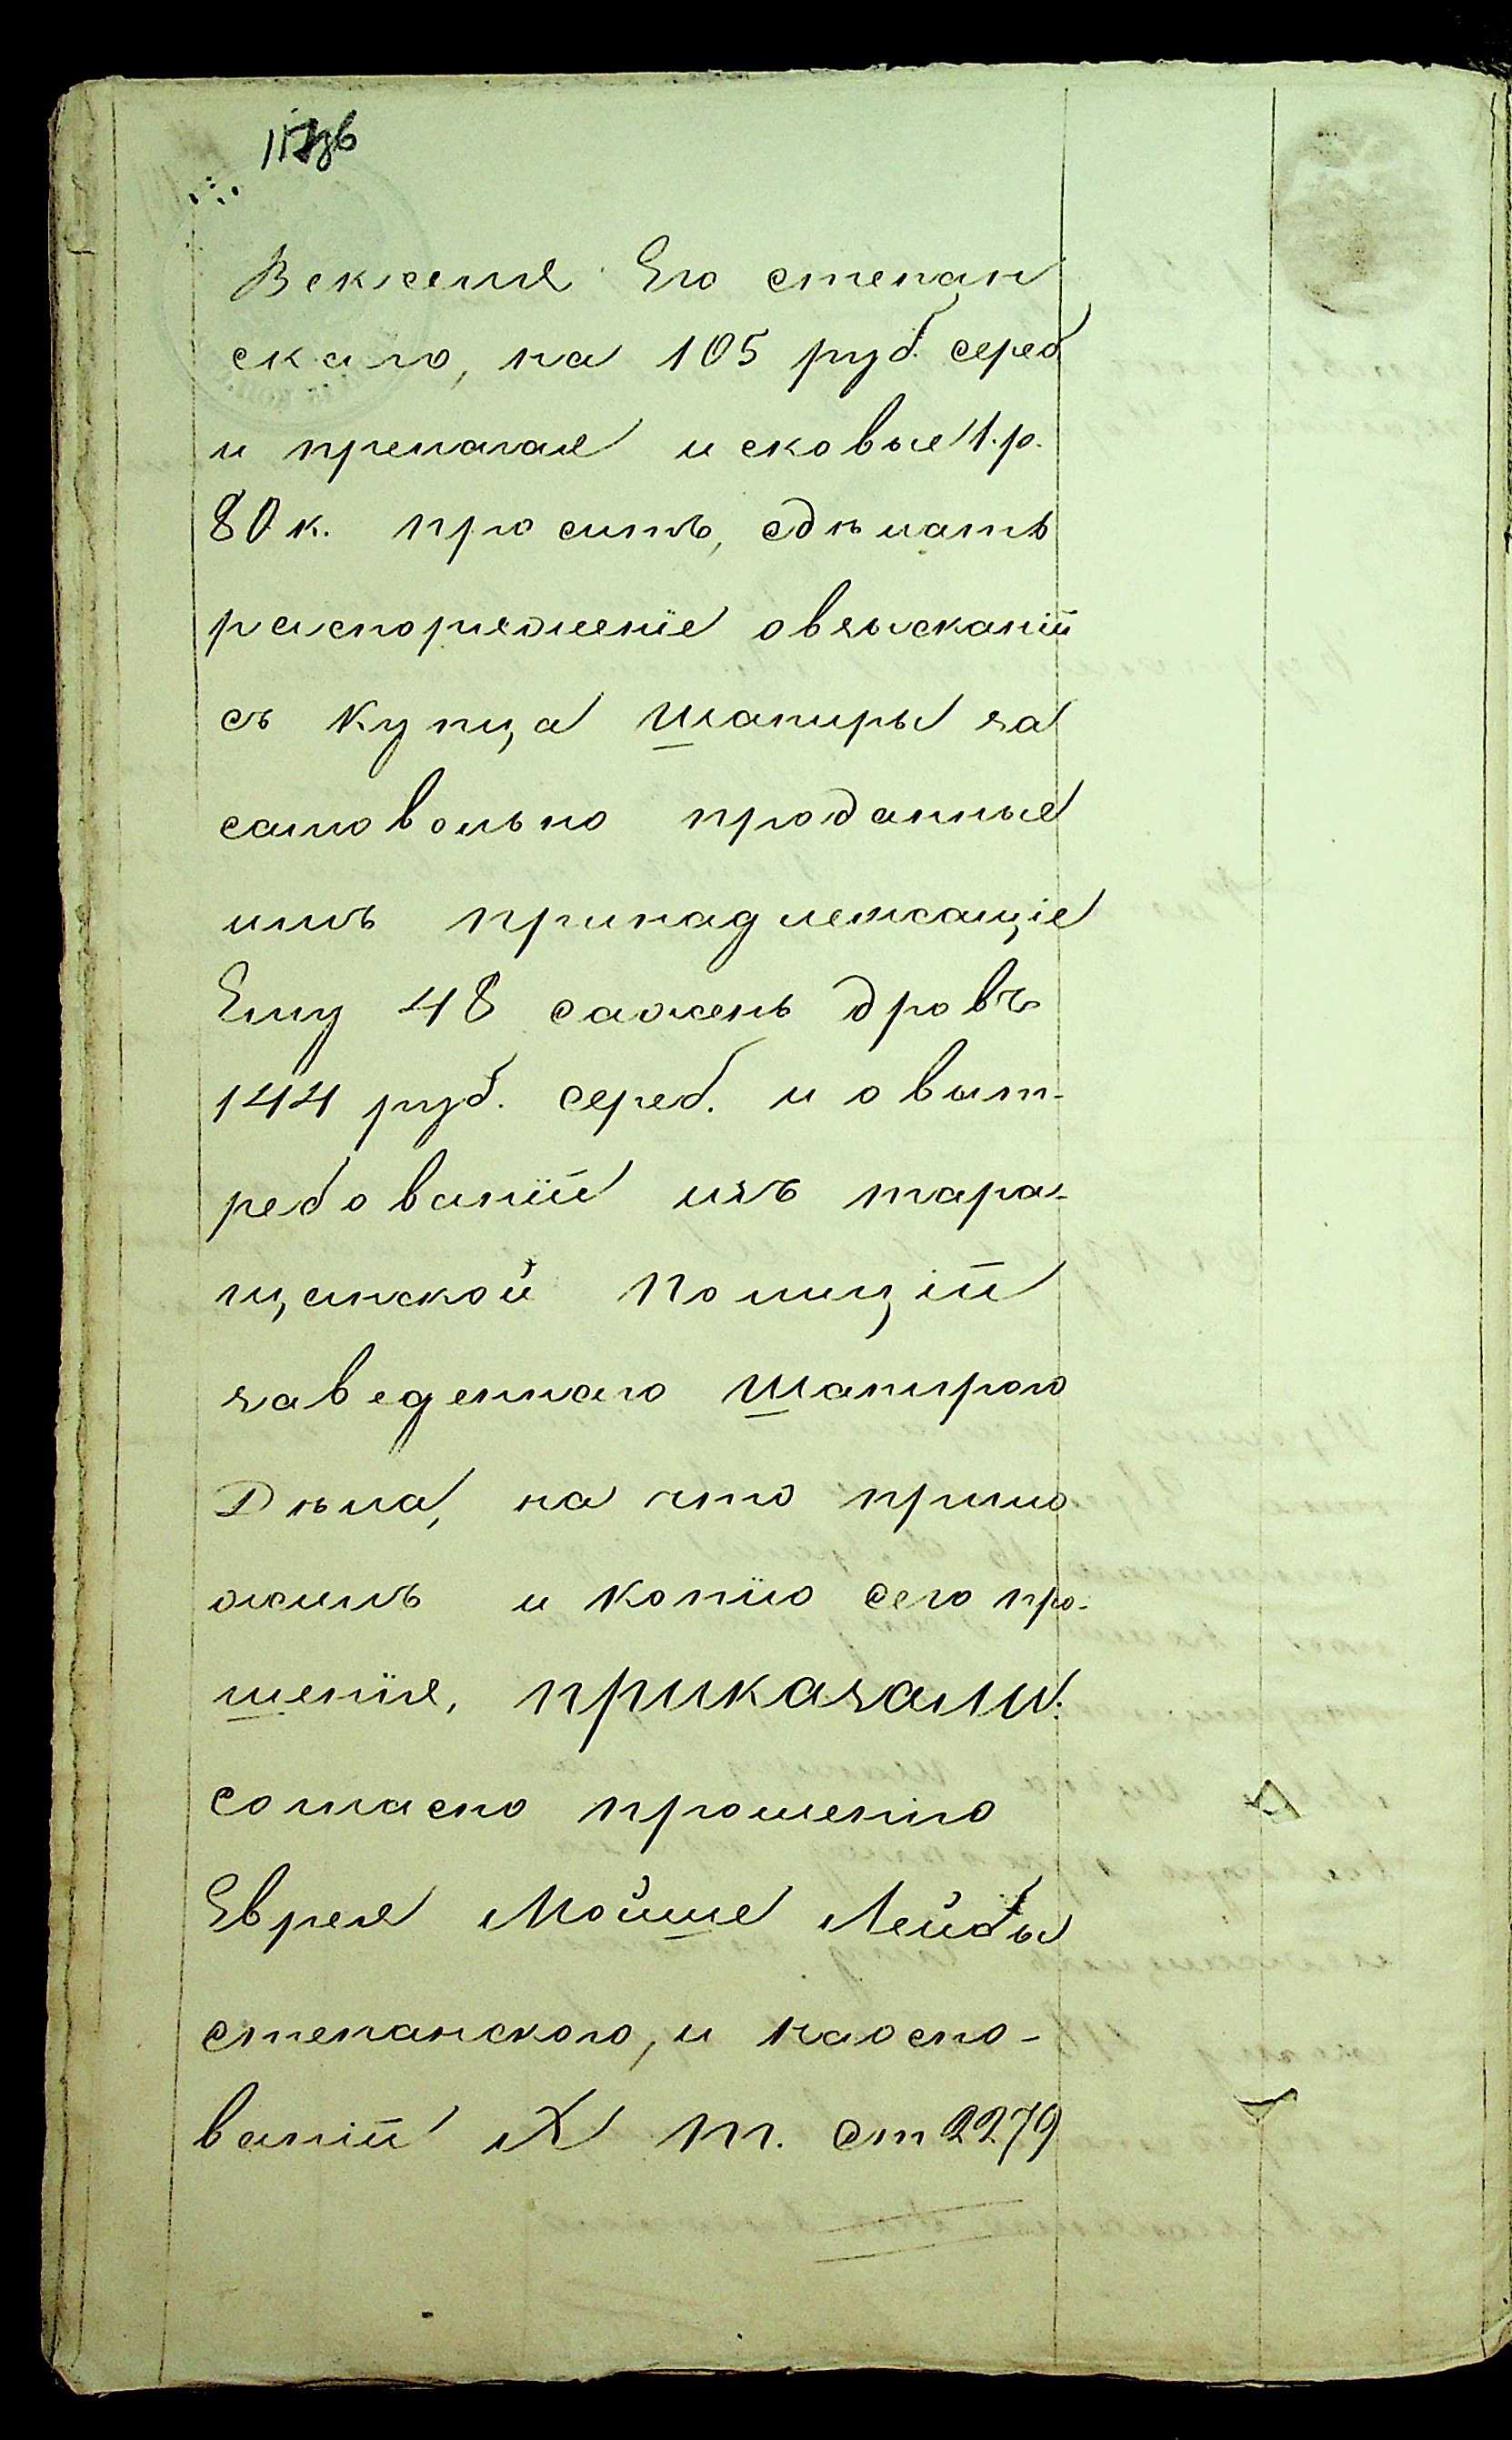 Векселя Его степан
скаго, на 105 руб. сереб
и прилагая исковые 1.р.
80 к. проситъ, сдѣлать
распоряженіе овзысканіи
съ Купца Шапиры за
самовольно проданные
имъ принадлежащіе
Ему 48 сажень дровъ
144 руб. сереб. и о выт-
ребованіи изъ тара-
щанской Полиціи
заведеннаго Шапирою
Дѣла, на что прило
жилъ и копію сего про-
шенія, приказали:
согласно прошенію
Еврея Мойше Лейбы
степанского, и наосно-
ваніи X т. ст 2279